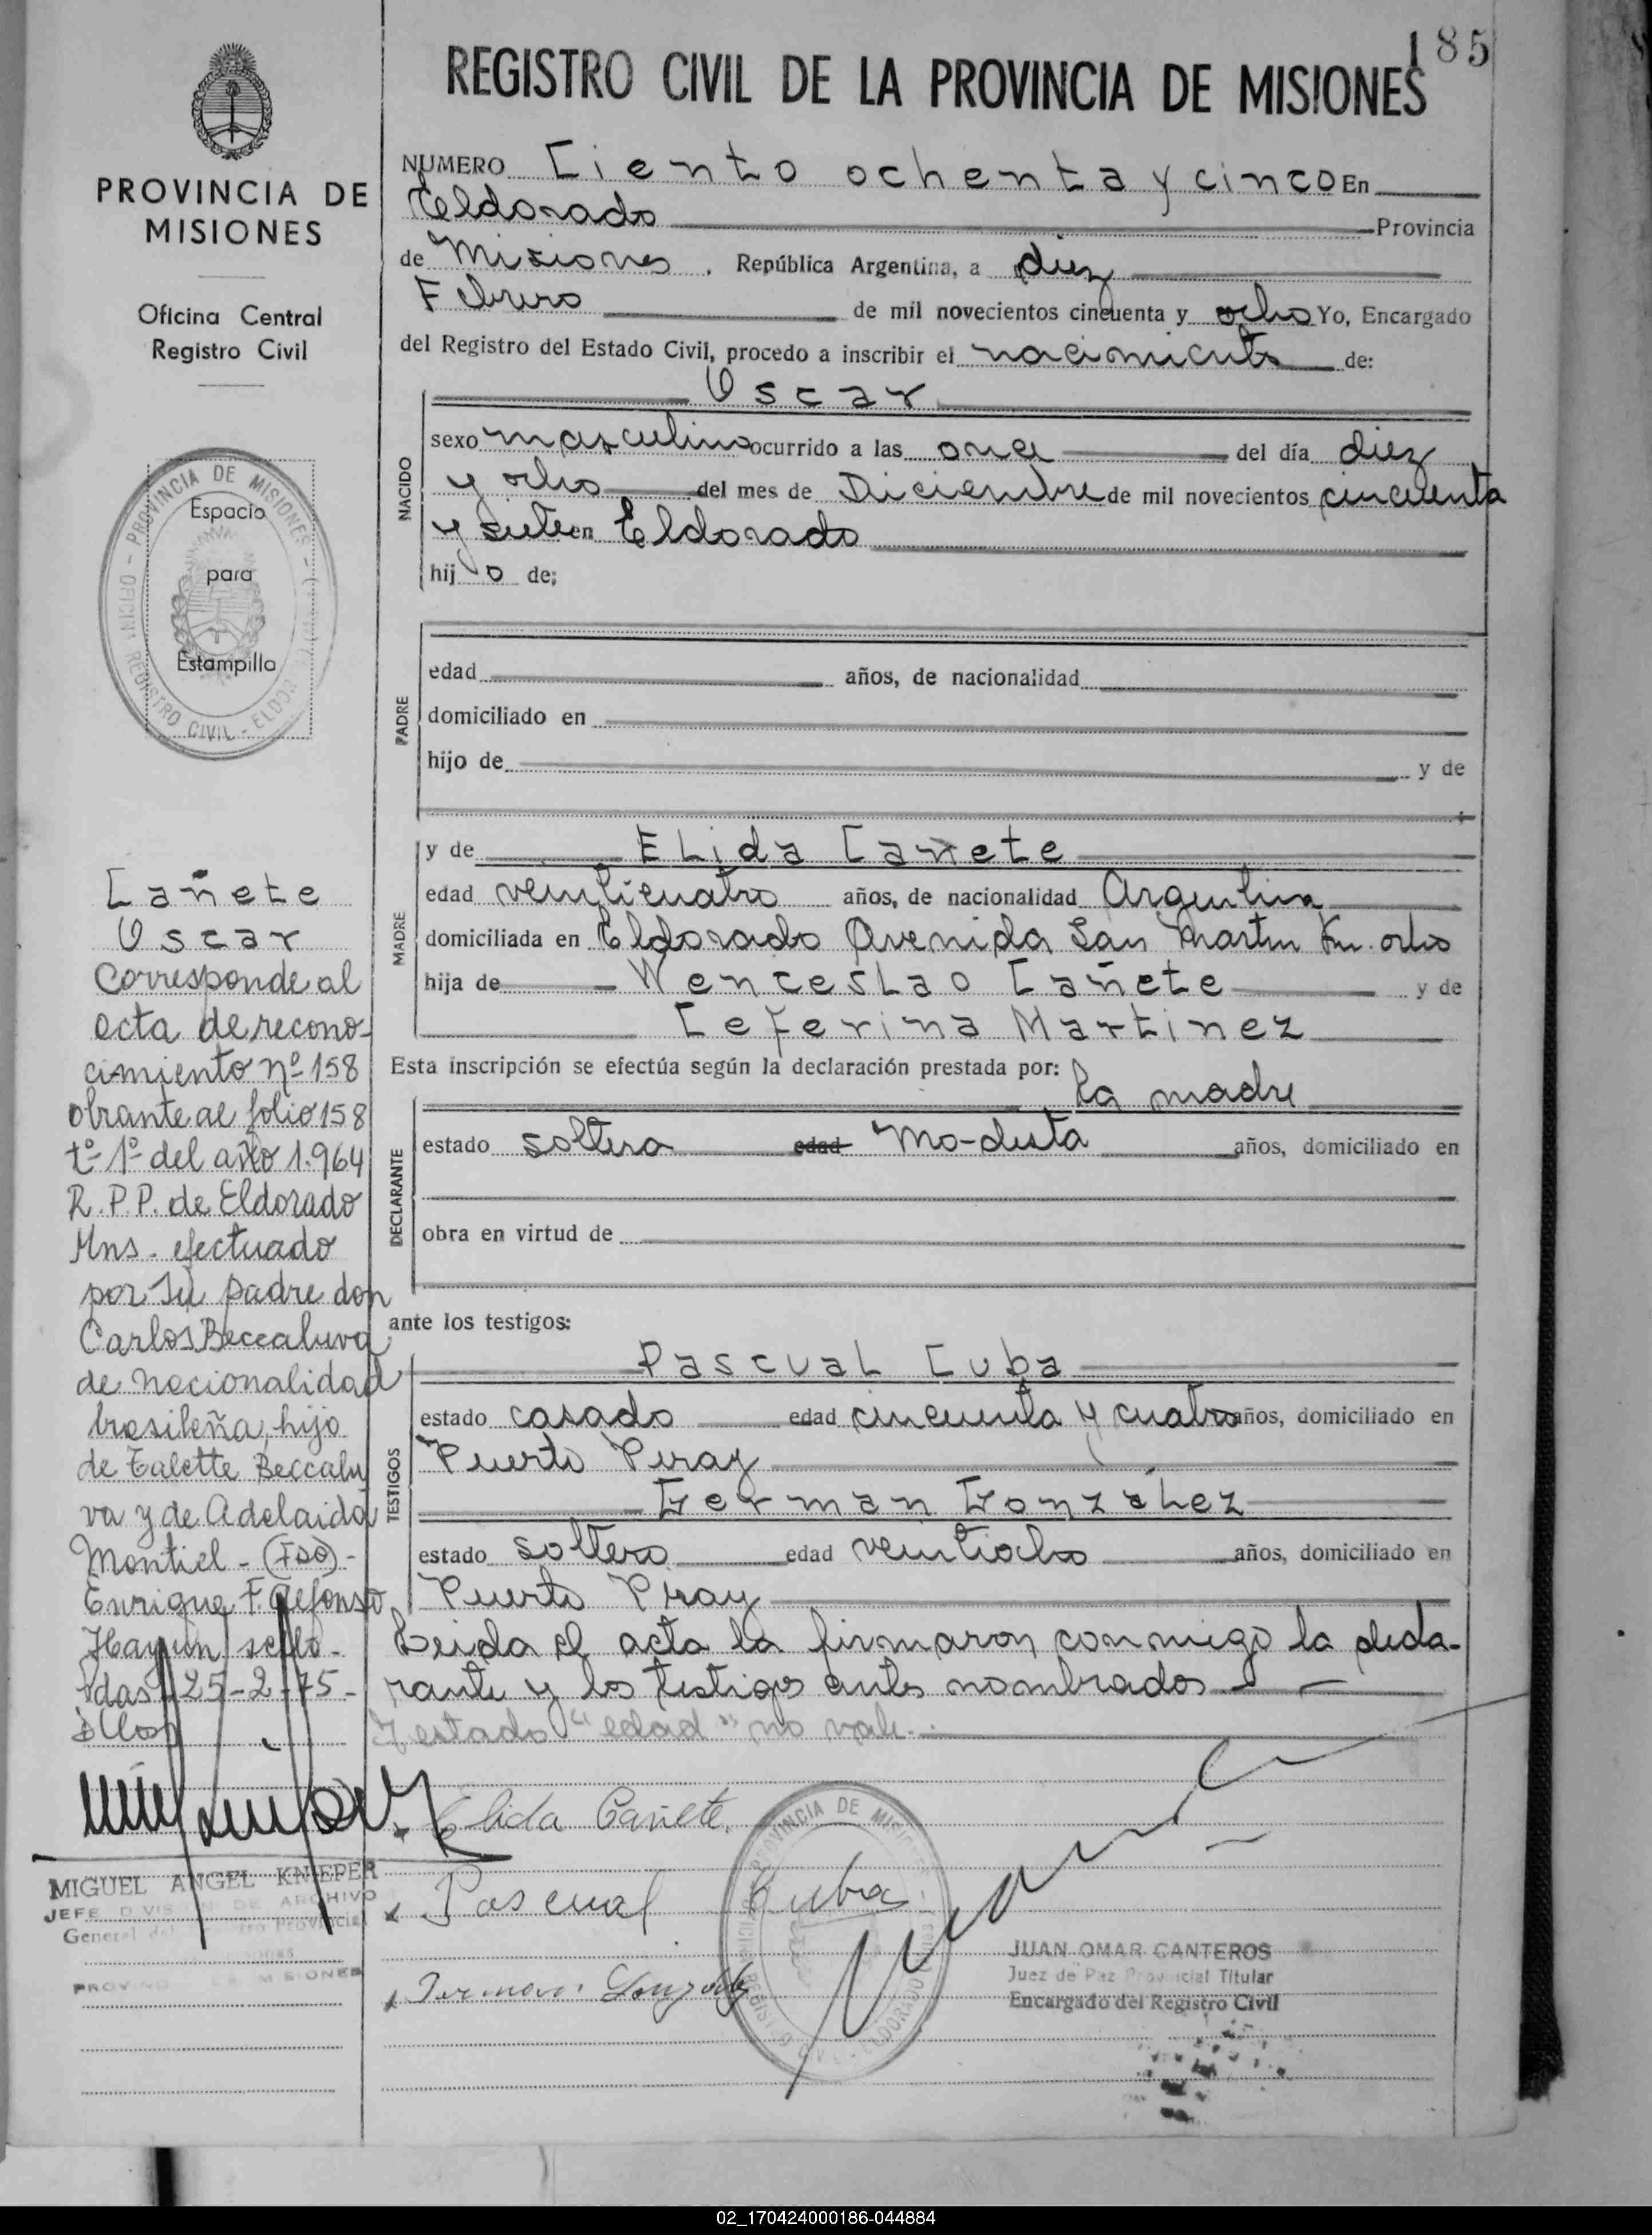 185
REGISTRO CIVIL DE LA PROVINCIA DE MISIONES
PROVINCIA DE
MISIONES
Oficina Central
Registro Civil
NUMERO Ciento ochenta y cinco En
Eldorado Provincia
de Misiones, República Argentina, a diez
Febrero de mil novecientos cincuenta y ocho Yo, Encargado
del Registro del Estado Civil, procedo a inscribir el nacimiento de:
NACIDO
Oscar
sexo masculino ocurrido a las once del día diez
y ocho del mes de Diciembre de mil novecientos cincuenta
y siete en Eldorado
hijo de;
PADRE
edad años, de nacionalidad
domiciliado en
hijo de y de
MADRE
y de Elida Cañete
edad veinticuatro años, de nacionalidad Argentina
domiciliada en Eldorado Avenida San Martin Km. ocho
hija de Wenceslao Cañete y de
Ceferina Martinez
Esta inscripción se efectúa según la declaración prestada por: la madre
DECLARANTE
estado soltera edad Mo-desta años, domiciliado en
obra en virtud de
ante los testigos:
TESTIGOS
Pascual Cuba
estado casado edad cincuenta y cuatro años, domiciliado en
Puerto Piray
German González
estado soltero edad veintiocho años, domiciliado en
Puerto Piray
Leida el acta la firmaron conmigo la decla-
rante y los testigos antes nombrados
Testado "edad" no vale.
Elida Cañete
Pascual Cuba
German Gonzalez
JUAN OMAR CANTEROS
Juez de Paz Provincial Titular
Encargado del Registro Civil
PROVINCIA DE MISIONES
REGISTRO CIVIL - ELDOR
Espacio
para
Estampilla
Cañete
Oscar
Corresponde al
acta de recono-
cimiento nº 158
obrante al folio 158
tº 1º del año 1.964
R.P.P. de Eldorado
Mns. efectuado
por su padre don
Carlos Beccaluva
de nacionalidad
brasileña, hijo
de Talette Beccalu
va y de Adelaida
Montiel - (FDO) -
Enrique F. Alfonso
Hay un sello -
Pdas 25-2-75 -
MIGUEL ANGEL KNIEPER
JEFE DIVISION DE ARCHIVO
General del Registro Provincial
PROVINCIA DE MISIONES
02_170424000186-044884